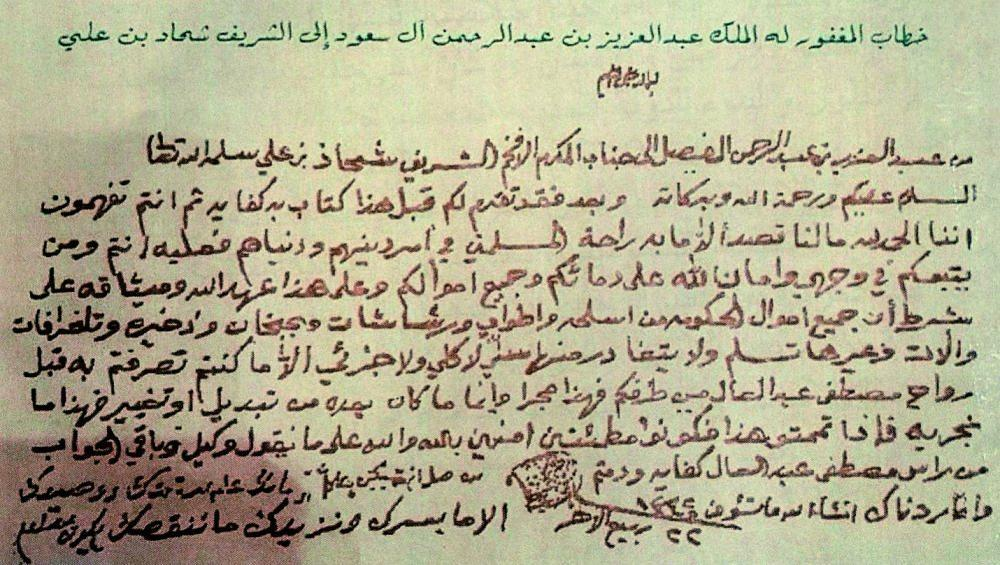 خطاب المغفور له الملك عبدالعزيز بن عبدالرحمن آل سعود إلى الشريف شحاد بن علي
من عبد العزيز بن عبد الرحمن الفيصل الى جناب المكرم الافخم الشريف شحاذ بن علي سلمه الله تعالى
السلام عليكم ورحمة الله وبركاته وبعد فقد تقدم لكم قبل هذا كتاب به كفايه ثم انتم تفهمون
اننا الحمد لله مالنا قصد الا ما به راحة المسلمين في امر دينهم ودنياهم فعليه انتم ومن
يتبعكم في وجهي وامان الله على دمائكم وجميع اموالكم وعلى هذا عهد الله وميثاقه على
شرط أن جميع اموال الحكومه من اسلحه واطواب ورشاشات وجبخان وذخيره وتلغرافات
والات وغيرها تسلم ولا يتغادر منها شي لا كلي ولا جزئي الا ما كنتم تصرفتم به قبل
رواح مصطفى عبد العال من طرفكم فهذا مجرا واما ما كان بعده من تبديل او تغيير فهذا ما
نجريه فاذا تممتو هذا فكونوا مطمئنين امنين بالله والله على ما نقول وكيل وباقي الجواب
من راس مصطفى عبد العال كفايه ودمتم
وانا اردناك انشاء الله ما تشوف الا ما يسرك ونزيدك ما ننقصك
٢٢ ربيع